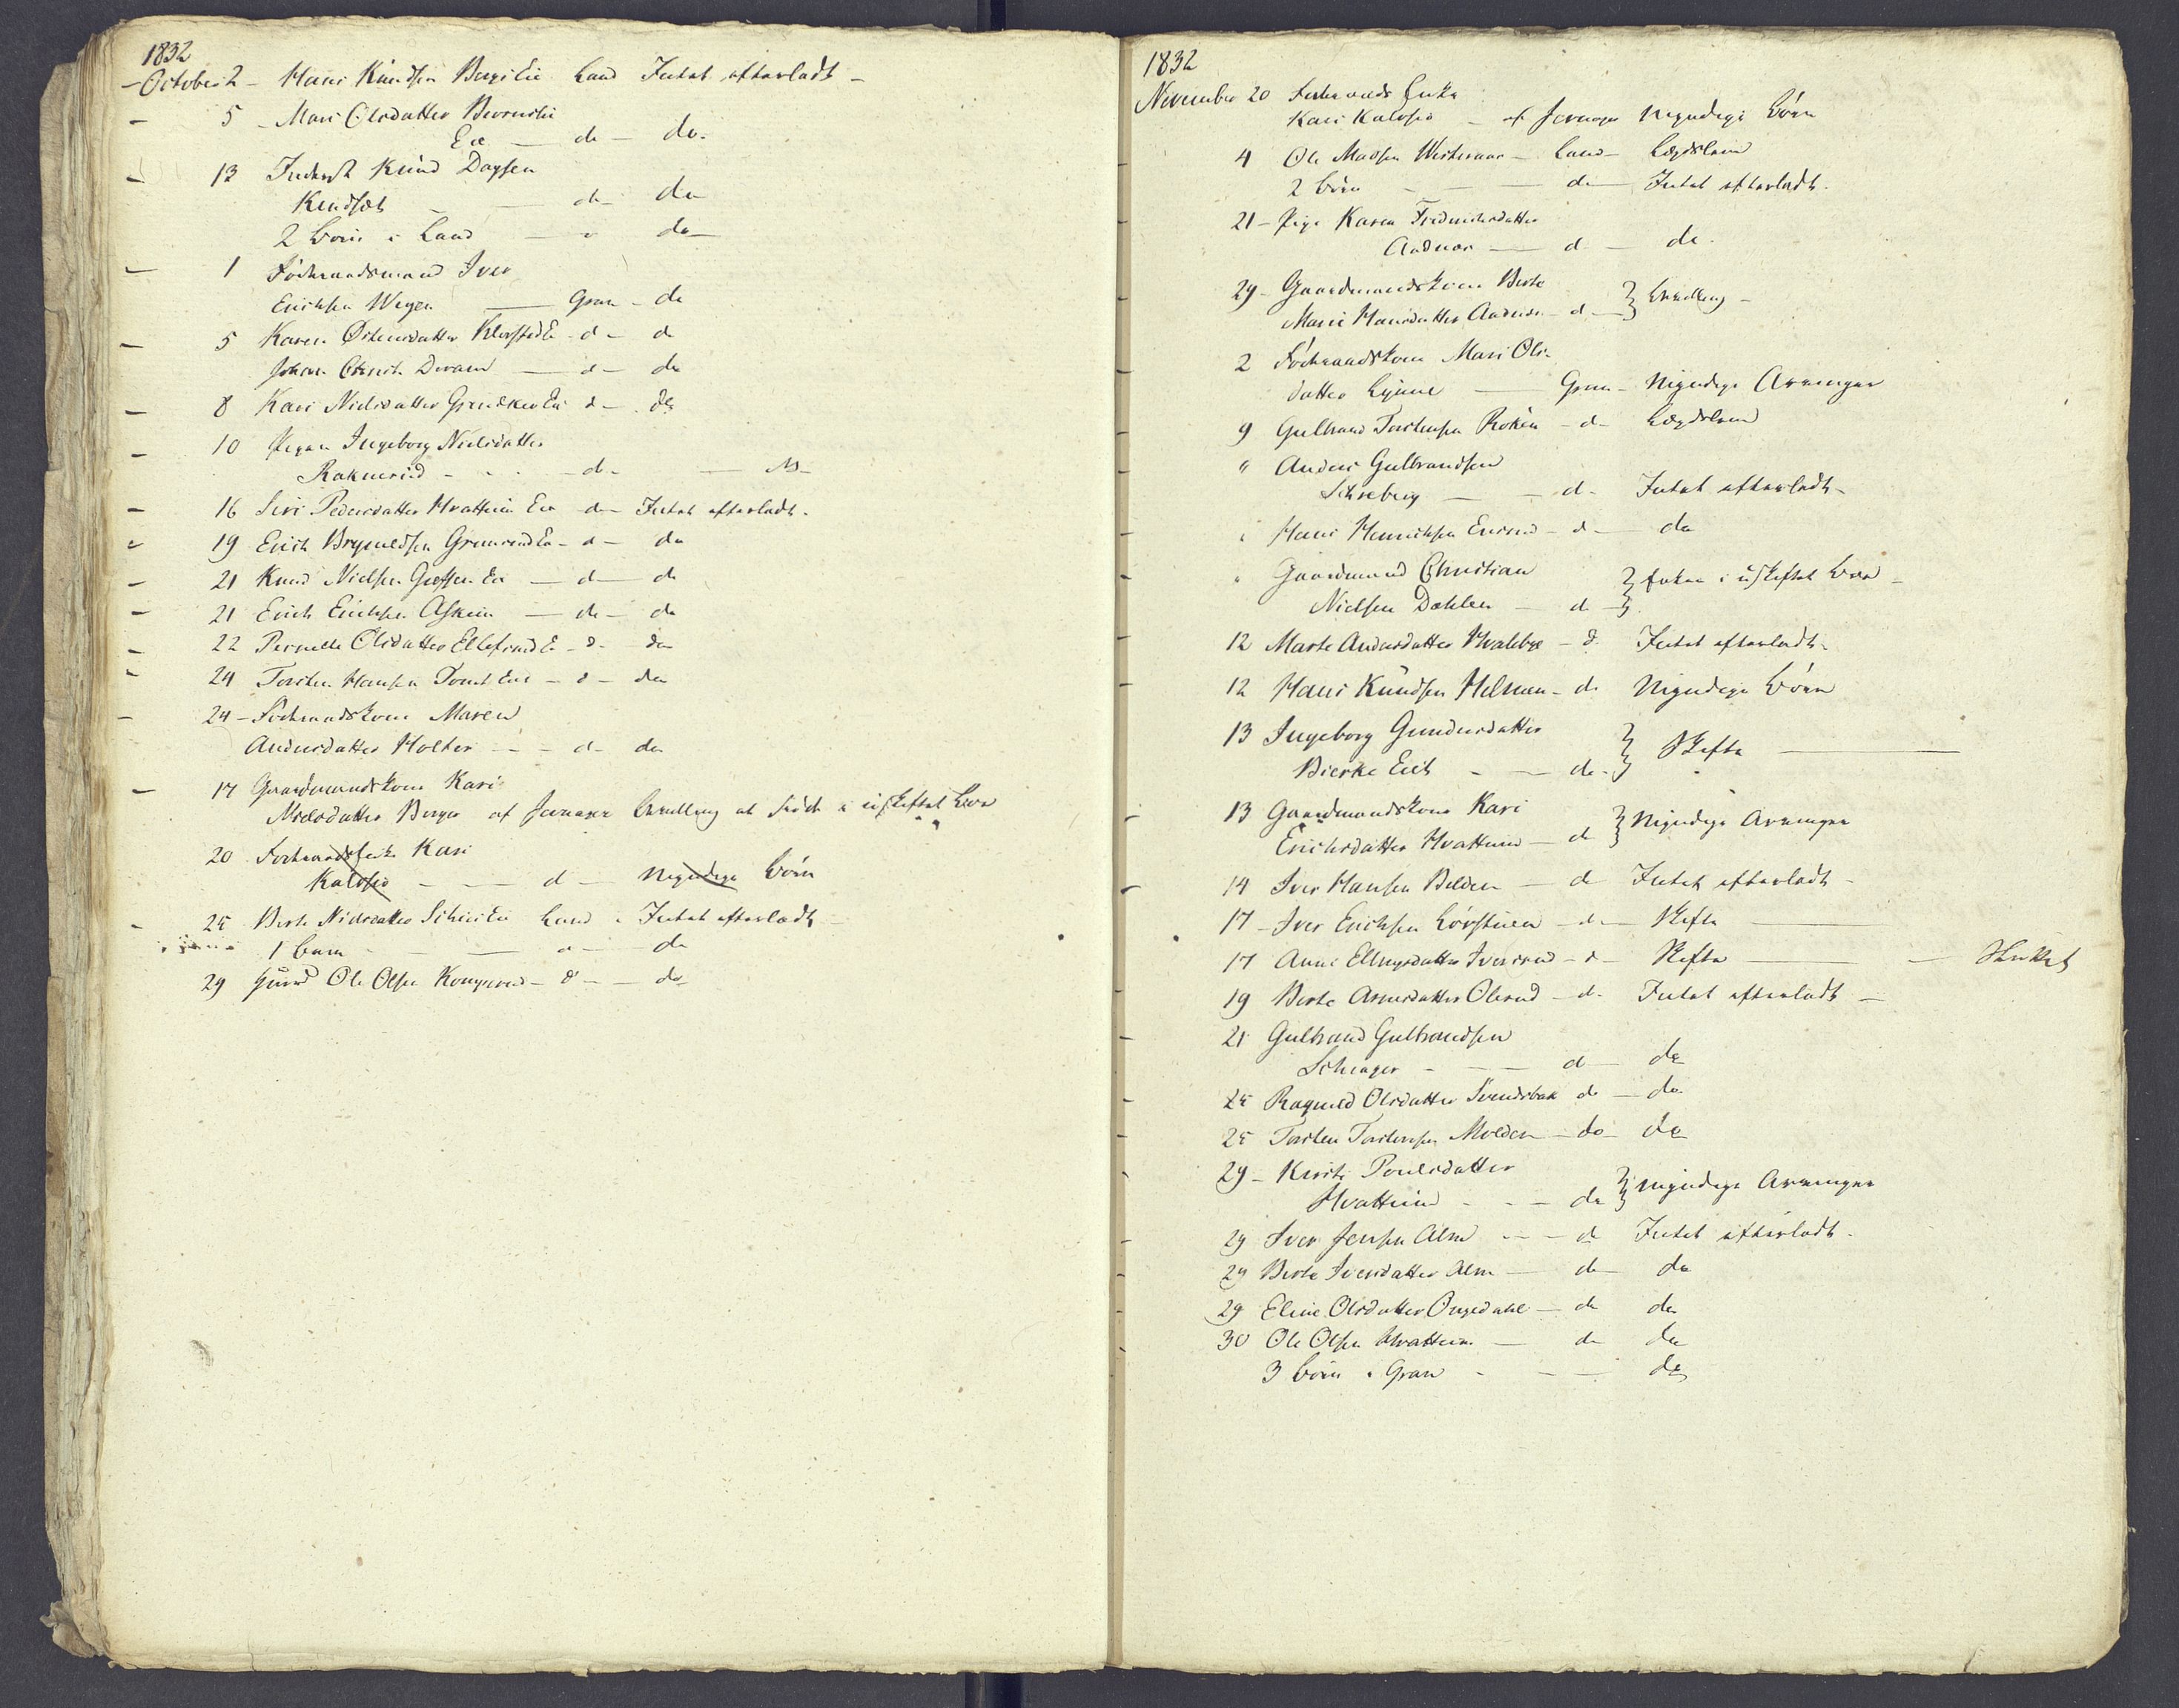 1832
October 2 - Hans Knudsen Bergs Eie Land Intet efterladt -
5 - Mari Olsdatter
Eie - do - do.
13 Inderst Knud Dagsen
Kindset - - do - do
2 Børn i Land - - do
1 Føderaadsmand Iver
Erichsen Wøyen - Gran - do
5 Karen Østensdatter - d - d
Johan - d - do
8 Kari Nielsdatter Eie d - do
10 Pigen Ingeborg Nielsdatter
Raknerud - - - d -
16 Siri Pedersdatter Hvattum Eie - d - Intet efterladt.
19 Erich Brynildsen - d - do
21 Knud Nielsen Eie - d - do
21 Erich Erichsen Askim - do - do
22 Pernelle Olsdatter Ellefsrud E - d - do
24 Torsten Hansen Tomt Eie - d - do
24 - Føderaadskone Maren
Andersdatter Holter - - d - do
17 Gaardmandskone Kari
Nielsdatter Berger af Jevnager Anmelding at sidde i uskiftet Boe
20 Føderaadsenke Kari
Kalosio - - d - Myndige Børn
25 Berte Nielsdatter Eie Land - Intet efterladt
1 Barn - - d - do
29 Ole Olsen Kongerud - d - - do
1832
November 20 Føderaads Enke
Kari Kalosio - af Jevnager Myndige Børn
4 Ole Madsen - Land - Lægdslem
2 Børn - - do - Intet efterladt.
21 - Pige Karen Fredrichsdatter
- d - do.
29 - Gaardmandskone Berte
Marie Hansdatter - d - } Anmelding -
2 Føderaadskone Mari Ols-
datter Lynne - Gran - Myndige Arvinger
9 Gulbrand Torstensen Røken - d - Lægdslem
" Anders Gulbrandsen
- - d - Intet efterladt -
" Hans Henrichsen - d - do
" Gaardmand Christian
Nielsen Dæhlen - d - } Enken i uskiftet Boe -
12 Marte Andersdatter Hvaleby - d Intet efterladt -
12 Hans Knudsen Helmen - do Myndige Børn
13 Ingeborg Gundersdatter
Bierke Eiet - - do - } Skifte -
13 Gaardmandskone Kari
Erichsdatter Hvattum - d } Myndige Arvinger
14 Iver Hansen Belden - d Intet efterladt -
17 - Iver Erichsen - d - Skifte -
17 Anne Ellingsdatter Iversrud - d - Skifte - - Sluttet
19 Berte Arnesdatter Olerud - d - Intet efterladt -
21 Gulbrand Gulbrandsen
Schiager - - - d - do
25 Ragnild Olsdatter Svendsbak do - do
25 Torsten Torstensen Molden - do - do
29 - Kirsti Poulsdatter
Hvattum - - - do } Myndige Arvinger
29 Iver Jensen Alm - - - d Intet efterladt.
29 Berte Iversdatter Alm - do - do
29 Eline Olsdatter - do do
30 Ole Olsen Hvattum - do do
3 Børn i Gran - - - do